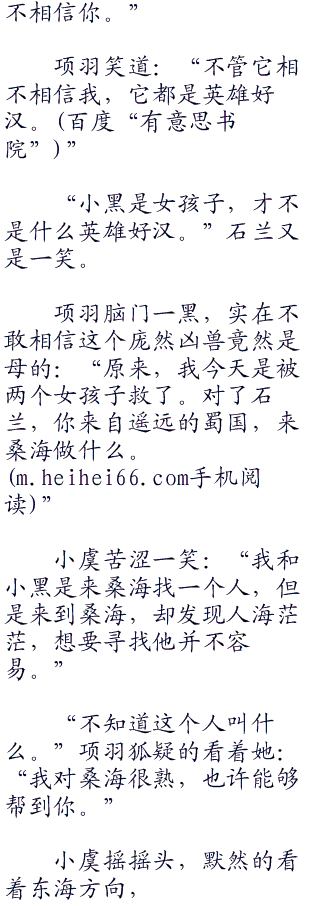 不相信你。”
项羽笑道：“不管它相
不相信我，它都是英雄好
汉。(百度“有意思书
院”)”
“小黑是女孩子，才不
是什么英雄好汉。”石兰又
是一笑。
项羽脑门一黑，实在不
敢相信这个庞然凶兽竟然是
母的：“原来，我今天是被
两个女孩子救了。对了石
兰，你来自遥远的蜀国，来
桑海做什么。
(m.heihei66.com手机阅
读)”
小虞苦涩一笑：“我和
小黑是来桑海找一个人，但
是来到桑海，却发现人海茫
茫，想要寻找他并不容
易。”
“不知道这个人叫什
么。”项羽狐疑的看着她：
“我对桑海很熟，也许能够
帮到你。”
小虞摇摇头，默然的看
着东海方向，